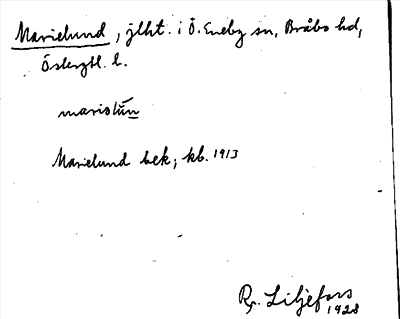 Marielund, jlht. i Ö. Eneby sn, Bråbo hd,
Östergtl. l.
mariolun
Marielund bek; kb. 1913
R. Liljefors
1928